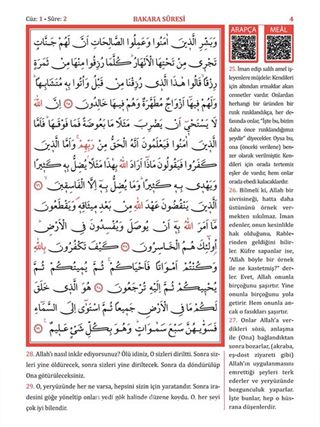 Cüz: 1 • Sûre: 2
BAKARA SÛRESİ
4
ARAPÇA
MEÂL
وَبَشِّرِ الَّذِينَ اٰمَنُوا وَعَمِلُوا الصَّالِحَاتِ اَنَّ لَهُمْ جَنَّاتٍ
تَجْرِي مِنْ تَحْتِهَا الْاَنْهَارُ كُلَّمَا رُزِقُوا مِنْهَا مِنْ ثَمَرَةٍ
رِزْقًا قَالُوا هٰذَا الَّذِي رُزِقْنَا مِنْ قَبْلُ وَاُتُوا بِهِ مُتَشَابِهًا
وَلَهُمْ فِيهَا اَزْوَاجٌ مُطَهَّرَةٌ وَهُمْ فِيهَا خَالِدُونَ ﴿٢٥﴾ اِنَّ اللّٰهَ
لَا يَسْتَحْيِ اَنْ يَضْرِبَ مَثَلًا مَا بَعُوضَةً فَمَا فَوْقَهَا فَاَمَّا
الَّذِينَ اٰمَنُوا فَيَعْلَمُونَ اَنَّهُ الْحَقُّ مِنْ رَبِّهِمْ وَاَمَّا الَّذِينَ
كَفَرُوا فَيَقُولُونَ مَاذَا اَرَادَ اللّٰهُ بِهٰذَا مَثَلًا يُضِلُّ بِهِ كَثِيرًا
وَيَهْدِي بِهِ كَثِيرًا وَمَا يُضِلُّ بِهِ اِلَّا الْفَاسِقِينَ ﴿٢٦﴾ اَلَّذِينَ
يَنْقُضُونَ عَهْدَ اللّٰهِ مِنْ بَعْدِ مِيثَاقِهِ وَيَقْطَعُونَ
مَا اَمَرَ اللّٰهُ بِهِ اَنْ يُوصَلَ وَيُفْسِدُونَ فِي الْاَرْضِ
اُولٰئِكَ هُمُ الْخَاسِرُونَ ﴿٢٧﴾ كَيْفَ تَكْفُرُونَ بِاللّٰهِ
وَكُنْتُمْ اَمْوَاتًا فَاَحْيَاكُمْ ثُمَّ يُمِيتُكُمْ ثُمَّ
يُحْيِيكُمْ ثُمَّ اِلَيْهِ تُرْجَعُونَ ﴿٢٨﴾ هُوَ الَّذِي خَلَقَ
لَكُمْ مَا فِي الْاَرْضِ جَمِيعًا ثُمَّ اسْتَوٰى اِلَى السَّمَاءِ
فَسَوّٰيهُنَّ سَبْعَ سَمٰوَاتٍ وَهُوَ بِكُلِّ شَيْءٍ عَلِيمٌ ﴿٢٩﴾
25. İman edip salih amel iş-
leyenlere müjdele: Kendileri
için altından ırmaklar akan
cennetler vardır. Onlardan
herhangi bir üründen bir
rızık rızıklandıkça, her de-
fasında onlar; "İşte bu, bizim
daha önce rızıklandığımız
şeydir" diyecekler. Oysa bu,
ona (önceki verilene) ben-
zer olarak verilmiştir. Kendi-
leri için orada tertemiz
eşler de vardır, hem onlar
orada ebedi kalacaklardır.
26. Bilmeli ki, Allah bir
sivrisineği, hatta daha
üstününü örnek ver-
mekten sıkılmaz. İman
edenler, onun kesinlikle
hak olduğunu, Rable-
rinden geldiğini bilir-
ler. Küfre sapanlar ise,
"Allah böyle bir örnek
ile ne kastetmiş?" der-
ler. Evet, Allah onunla
birçoğunu şaşırtır. Yine
onunla birçoğunu yola
getirir. Hem onunla an-
cak o fâsıkları şaşırtır.
27. Onlar Allah'a ver-
dikleri sözü, anlaşma
ile (Ona) bağlandıktan
sonra bozarlar, (akraba,
eş-dost ziyareti gibi)
Allah'ın uygulanmasını
emrettiği şeyleri terk
ederler ve yeryüzünde
bozgunculuk yaparlar.
İşte bunlar, hep o hüs-
rana düşenlerdir.
28. Allah'ı nasıl inkâr ediyorsunuz? Ölü idiniz, O sizleri diriltti. Sonra siz-
leri yine öldürecek, sonra sizleri yine diriltecek. Sonra da döndürülüp
Ona götürüleceksiniz.
29. O, yeryüzünde her ne varsa, hepsini sizin için yaratandır. Sonra ira-
desini göğe yöneltip onları yedi gök halinde düzene koydu. O, her şeyi
çok iyi bilendir.